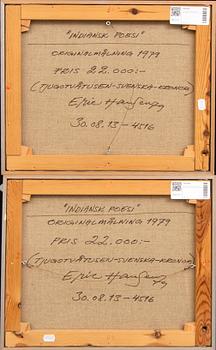 "INDIANSK POESI"
ORIGINALMÅLNING 1979
PRIS 22.000:-
(TJUGOTVÅTUSEN-SVENSKA-KRONOR)
30.08.13-4516
"INDIANSK POESI"
ORIGINALMÅLNING 1979
PRIS 22.000:-
(TJUGOTVÅTUSEN-SVENSKA-KRONOR)
30.08.13-4516